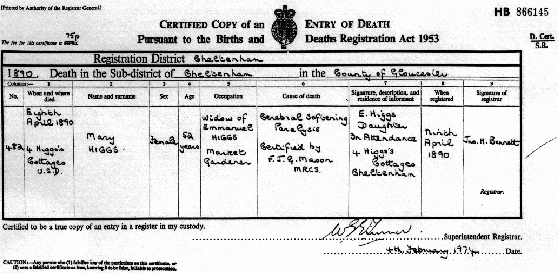 Printed by Authority of the Registrar General)
HB 866145
CERTIFIED COPY of an ENTRY OF DEATH
Pursuant to the Births and Deaths Registration Act 1953
D. Cert.
S.R.
The fee for this certificate is 75p
Registration District Cheltenham
1890. Death in the Sub-district of Cheltenham in the County of Gloucester
Columns:— 1 2 3 4 5 6 7 8 9
No. When and where died Name and surname Sex Age Occupation Cause of death Signature, description, and residence of informant When registered Signature of registrar
482
Eighth
April 1890
4 Higgs's
Cottages
U.S.D.
Mary
HIGGS
Female
52
years
Widow of
Emmanuel
HIGGS
Market
Gardener
Cerebral Softening
Paralysis
Certified by
F.J.G. Mason
MRCS.
E. Higgs
Daughter
In Attendance
4 Higgs's
Cottages
Cheltenham
Ninth
April
1890
Jno. H. Bennett
Registrar.
Certified to be a true copy of an entry in a register in my custody.
Superintendent Registrar.
4th February 1974 Date.
CAUTION:—Any person who (1) falsifies any of the particulars on this certificate, or
(2) uses a falsified certificate as true, knowing it to be false, is liable to prosecution.